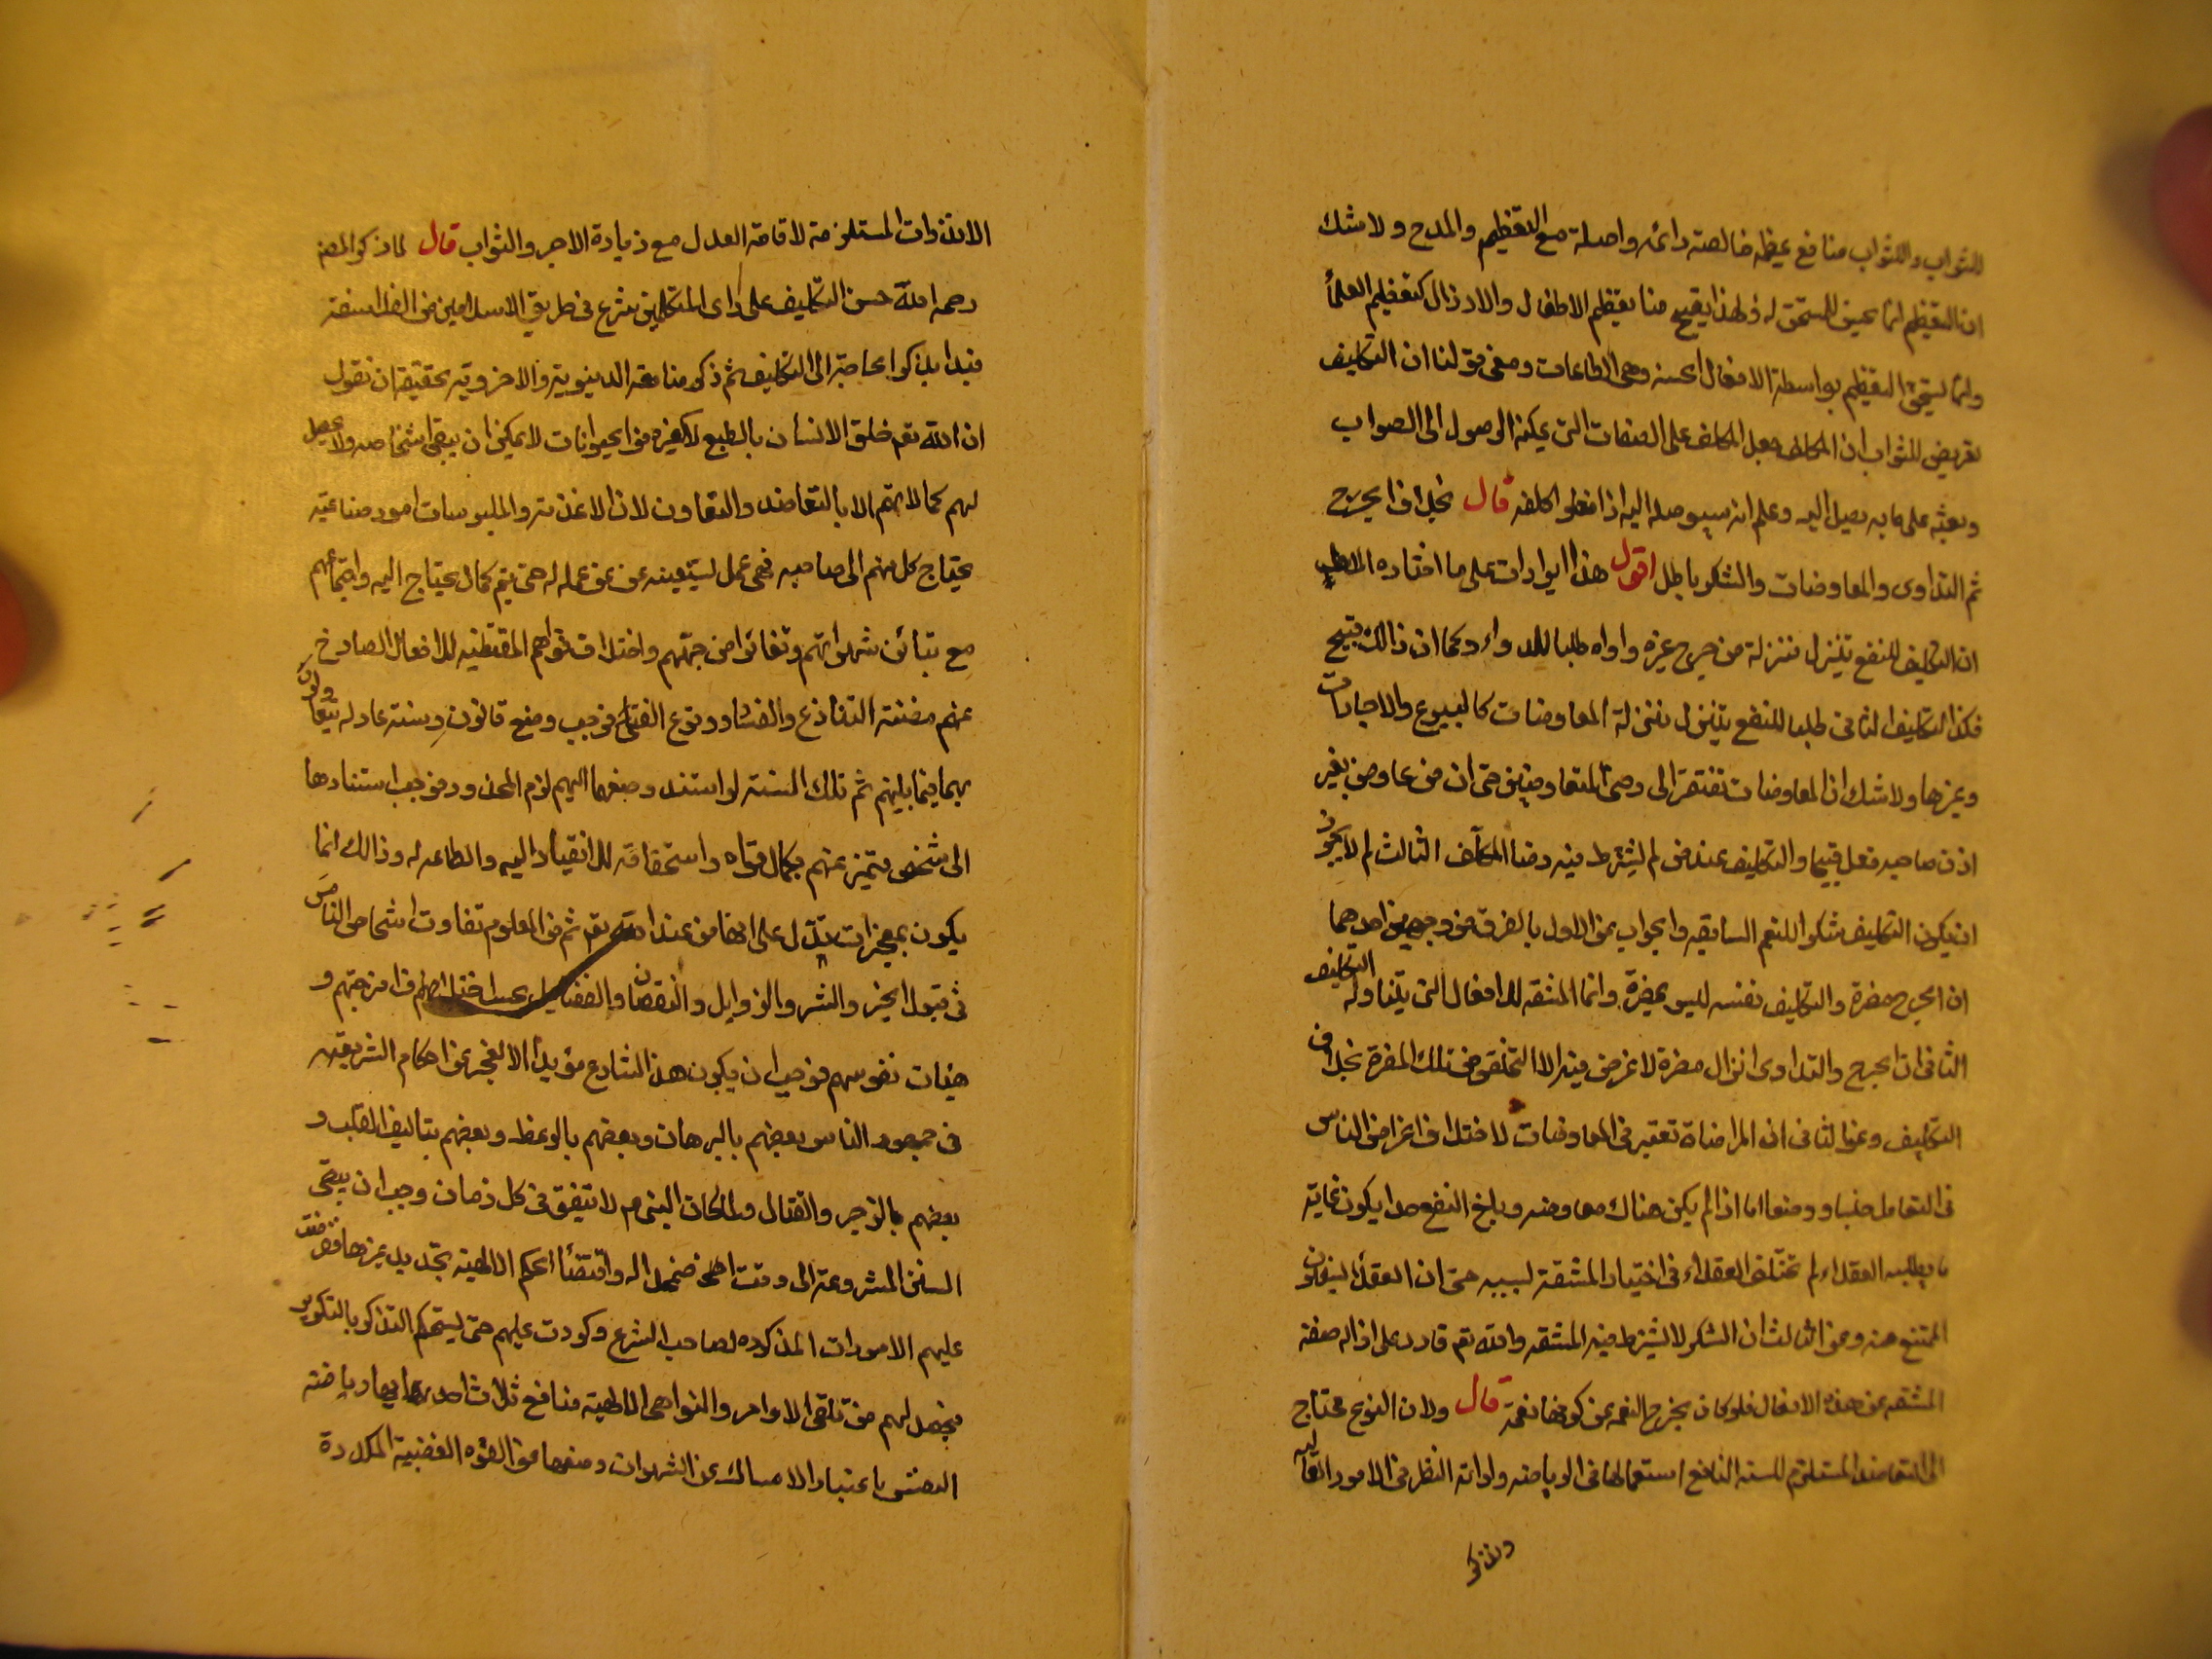 للثواب والثواب منافع عظيمة خالصة دائمة واصلة مع التعظيم والمدح ولا شك
ان التعظيم انما يحسن للمستحق له ولهذا يقبح منا تعظيم الاطفال والارذال كتعظيم العلمأ
وانما يستحق التعظيم بواسطة الافعال الحسنه وهى الطاعات ومعنى قولنا ان التكليف
تعريض للثواب ان المكلف جعل المكلف على الصفات التى يمكنه الوصول الى الصواب
وبعثه على ما به يصل اليه وعلم انه سيوصله اليه اذا فعل ما كلفه قال بخلاف الجرح
ثم التداوى والمعاوضات والشكر باطل اقول هذا ايرادات على ما اختاره المصنف
ان التكليف للنفع يتنزل منزلة من جرح غيره واداه طلبا للدواء وكما ان ذالك قبيح
فكذا التكليف الثانى طلبا للنفع يتنزل بمنزلة المعاوضات كالبيوع والاجارات
وغيرها ولا شك ان المعاوضات تفتقر الى رضى المتعاوضين حتى ان من عاوض بغير
اذن صاحبه فعل قبيحا والتكليف عندهم لم يشترط فيه رضا المكلف الثالث لم لا يجوز
ان يكون التكليف شكرا للنعم السابقه والجواب عن الاول بالفرق من وجهين احدهما
ان الجرح مضرة والتكليف نفسه ليس بمضرة وانما المشقه للافعال التى يتناولها التكليف
الثانى ان الجرح والتداوى انزال مضرة لا غرض فيه الا التخلص من تلك المضرة بخلاف
التكليف وعن الثانى ان المراضاة تعتبر فى المعاوضات لاختلاف اغراض الناس
فى التعامل جنسا ووصفا اما اذا لم يكن هناك معاوضه وبلغ النفع حدا يكون غاية
ما يطلبه العقلاء لم تختلف العقلاء فى اختيار المشقة لسببه حتى ان العقلاء يسفهون
الممتنع منه وعن الثالث ان الشكر لا يشترط فيه المشقه والله تعم قادر على ازاله صفة
المشقه عن هذه الافعال فلو كان يخرج النعمه عن كونها نعمة قال ولان النوع محتاج
الى التعاضد المستلزم للسنه النافع استعمالها فى الرياضه وادامة النظر فى الامور العاليه
وتذكر
الانذارات المستلزمة لاقامة العدل مع زيادة الاجر والثواب قال لما ذكر المصنف
رحمه الله حسن التكليف على راى المتكلمين شرع فى طريق الاسلاميين من الفلاسفة
فبدا بذكر الحاجة الى التكليف ثم ذكر منافعه الدينوية والاخروية تحقيقه ان نقول
ان الله تعم خلق الانسان بالطبع لا كغيره من الحيوانات لا يمكن ان يبقى اشخاصه ولا يحصل
لهم كمالاتهم الا بالتعاضد والتعاون لان الاغذية والملبوسات امور صناعية
يحتاج كل منهم الى صاحبه فى عمل يستعينه عن عمله له حتى يتم كمال يحتاج اليه واجتماعهم
مع تباين شهواتهم وتغاير امزجتهم واختلاف قواهم المقتضيه للافعال الصادره
عنهم مضنة التنازع والفساد ووقوع الفتن فوجب وضع قانون وسنة عادله يتعادلون
بها فيما بينهم ثم تلك السنة لو استند وضعها اليهم لزم المحذور فوجب استنادها
الى شخص متميز عنهم بكمال قواه واستحقاقه للانقياد اليه والطاعه له وذالك انما
يكون بمعجزات تدل على انها من عند الله تعم ثم من المعلوم تفاوت اشخاص الناس
فى قبول الخير والشر والرذايل والنقصان والفضايل بحسب اختلافهم فى امزجتهم و
هيئات نفوسهم فوجب ان يكون هذا الشارع مؤيدا لا يعجز عن احكام الشريعه
فى جمهور الناس بعضهم بالبرهان وبعضهم بالوعظ وبعضهم بتاليف القلب و
بعضهم بالزجر والقتال ولما كان النبى ص لا يتفق فى كل زمان وجب ان يبقى
السنن المشروعة الى وقت اضمحلاله واقتضأ الحكم الالهية تجديد غيرها ففرضت
عليهم الامورات المذكوره لصاحب الشرع وكررت عليهم حتى يستحكم التذكر بالتكرير
فيحصل لهم من تلقى الاوامر والنواهى الالهية منافع ثلاث احدها رياضة
النفس باعتبار الامساك عن الشهوات ومنعها عن القوه الغضبية المكدرة